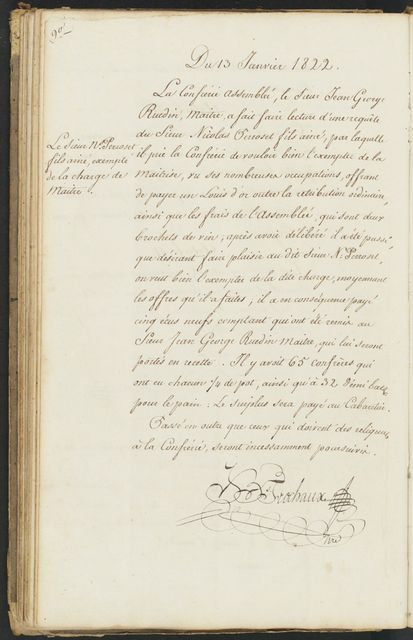 90.
Du 13 Janvier 1822.
La Confrérie assemblée, le Sieur Jean George
Ruedin, Maitre, a fait faire lecture d'une requête
du Sieur Nicolas Perroset fils ainé, par laquelle
il prie la Confrérie de vouloir bien l'exempter de la
Maitrise, vu ses nombreuses occupations, offrant
de payer un Louis d'or outre la rétribution ordinaire,
ainsi que les frais de l'Assemblée, qui sont deux
brochets de vin; après avoir délibéré il a été passé
que désirant faire plaisir au dit Sieur N. Perroset,
on veut bien l'exempter de la dite charge, moyennant
les offres qu'il a faites; il a en conséquence payé
cinq écus neufs comptant qui ont été remis au
Sieur Jean George Ruedin Maitre, qui lui seront
portés en recette. Il y avoit 65 confrères qui
ont eu chacun 1/4 de pot, ainsi qu'à 32 demi batz
pour le pain. Le surplus sera payé au Cabaretier.
Passé en outre que ceux qui doivent des reliquats
à la Confrérie, seront incessamment poursuivis.
Le Sieur Ns. Perroset
fils ainé, exempté
de la charge de
Maitre.